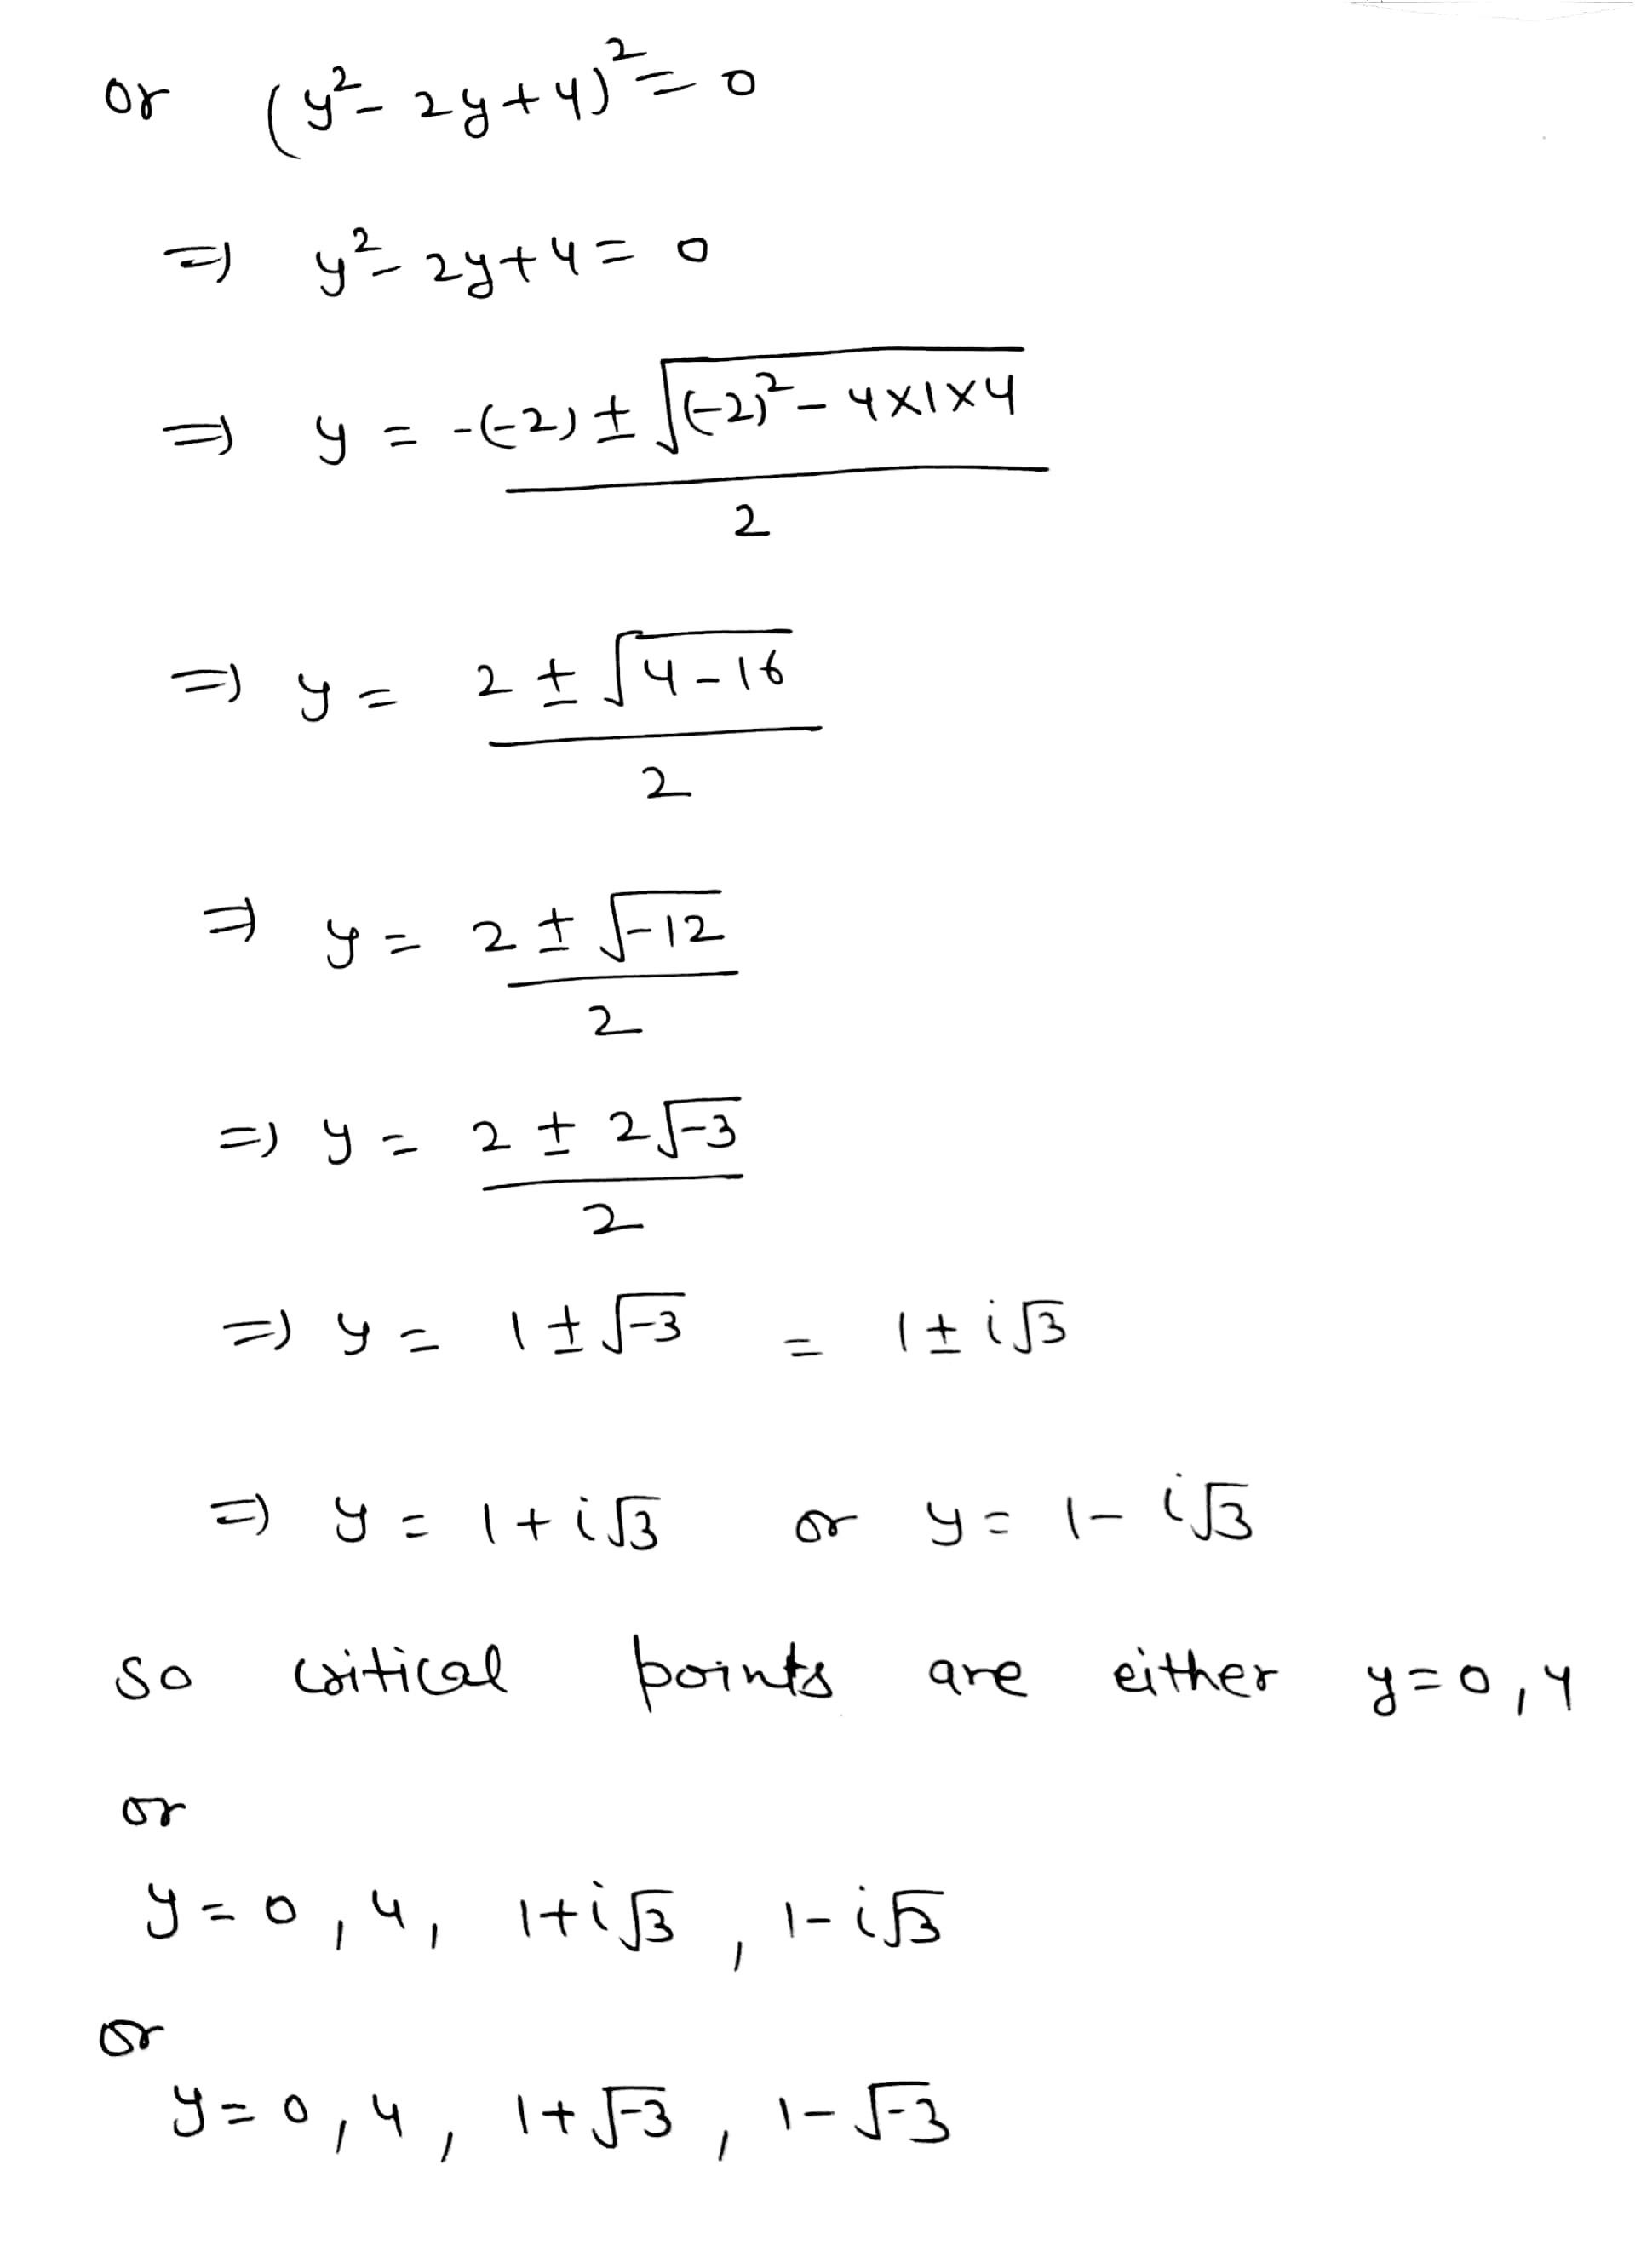 or (y² - 2y + 4)² = 0
⇒ y² - 2y + 4 = 0
⇒ y = -(-2) ± √((-2)² - 4×1×4)
2
⇒ y = 2 ± √(4-16)
2
⇒ y = 2 ± √-12
2
⇒ y = 2 ± 2√-3
2
⇒ y = 1 ± √-3 = 1 ± i√3
⇒ y = 1 + i√3 or y = 1 - i√3
so critical points are either y = 0, 4
or
y = 0, 4, 1+i√3, 1-i√3
or
y = 0, 4, 1+√-3, 1-√-3